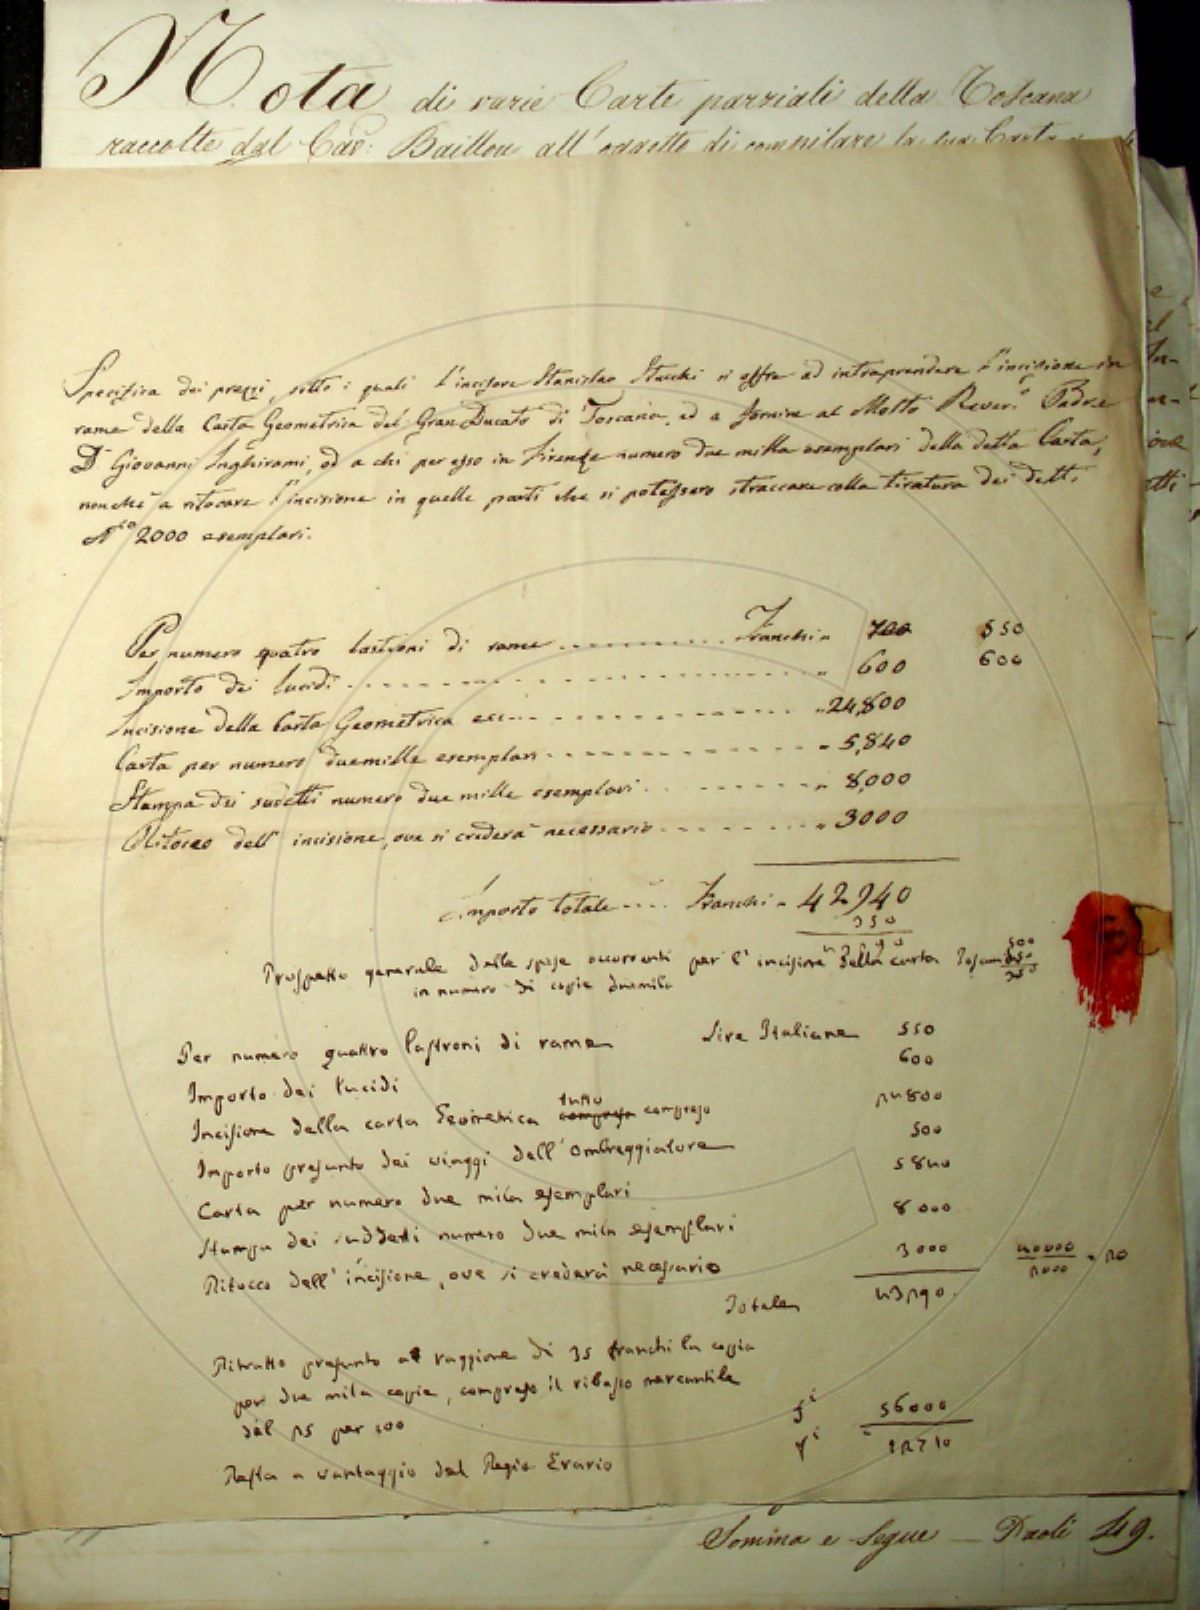 Nota di varie Carte parziali della Toscana
raccolte dal Cav: Baillou all'oggetto di compilare la sua Carta
Specifica dei prezzi, sotto i quali l'incisore Stanislao Stucchi si offre ad intraprendere l'incisione in
rame della Carta Geometrica del Gran Ducato di Toscana, ed a fornire al Molto Rever.o Padre
D. Giovanni Inghirami, od a chi per esso in Firenze numero due mille esemplari della detta Carta,
nonchè a ritocare l'incisione in quelle parti che si potessero straccare colla tiratura dei detti
N.ro 2000 esemplari.
Per numero quatro lastroni di rame .......... Franchi " 700 550
Importo dei lucidi .......... " 600 600
Incisione della Carta Geometrica ecc .......... " 24,800
Carta per numero duemille esemplari .......... " 5,840
Stampa dei sudetti numero due mille esemplari .......... " 8,000
Ritocco dell'incisione, ove si crederà necessario .......... " 3000
Importo totale .... Franchi " 42940
350
Prospetto generale delle spese occorrenti per l'incisione della carta
in numero di copie duemila
Per numero quattro lastroni di rame Lire Italiane 550
Importo dei lucidi 600
Incisione della carta Geometrica tutto compreso 24800
Importo presunto dei viaggi dell'ombreggiatore 500
Carta per numero due mila esemplari 5840
Stampa dei suddetti numero due mila esemplari 8000
Ritocco dell'incisione, ove si crederà necessario 3000
40000 / 2000 = 20
Totale 43290.
Ritratto presunto a raggione di 35 franchi la copia
per due mila copie, compreso il ribasso mercantile
del 25 per 100 56000
Resta a vantaggio del Regio Erario 12710
Somma e segue — Paoli 49.